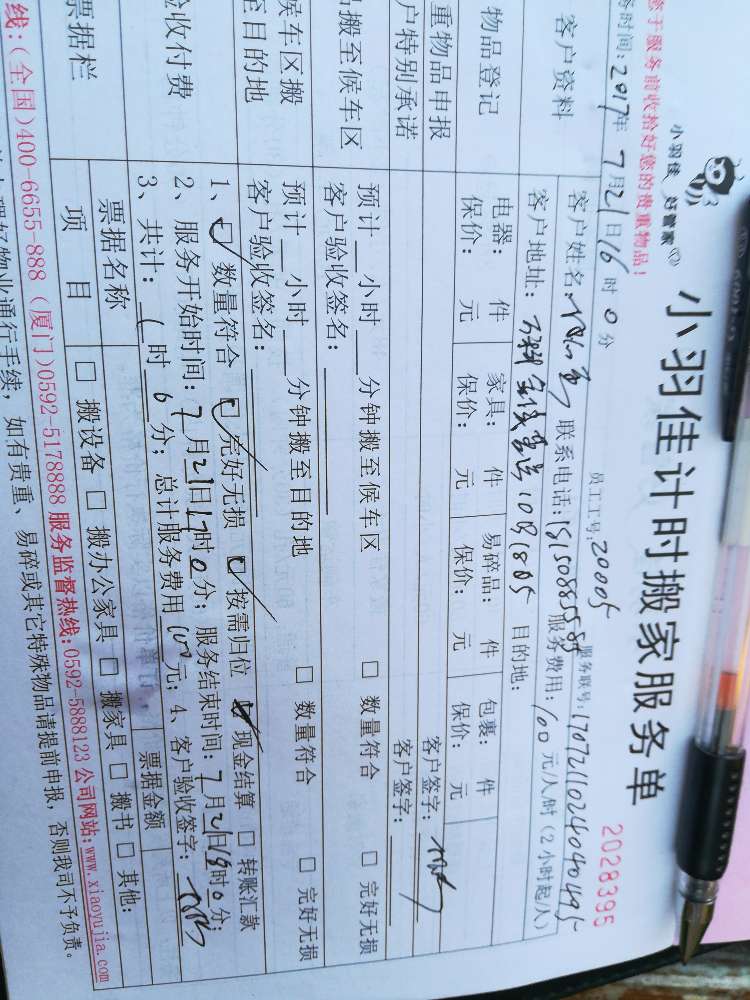 您于服务前收拾好您的贵重物品!
小羽佳 好管家
小羽佳计时搬家服务单
2028395
务时间:2017年7月21日16时0分
员工工号:20005
服务联号:17072110240404495
客户资料
客户姓名:
联系电话:
服务费用:100元/人/时(2小时起/人)
客户地址:
10号1805
目的地:
物品登记
电器: 件 家具: 件 易碎品: 件 包裹: 件
保价: 元 保价: 元 保价: 元 保价: 元
重物品申报
客户签字:
户特别承诺
客户签字:
搬至候车区
预计__小时__分钟搬至候车区 □ 数量符合 □ 完好无损
客户验收签名:
候车区搬
至目的地
预计__小时__分钟搬至目的地 □ 数量符合 □ 完好无损
客户验收签名:
验收付费
1、☑ 数量符合 ☑ 完好无损 ☑ 按需归位 ☑ 现金结算 □ 转账汇款
2、服务开始时间:7月21日17时0分;服务结束时间:7月21日18时0分;
3、共计:1时6分;总计服务费用100元;4、客户验收签字:
票据栏
票据名称 票据金额
项 目 □ 搬设备 □ 搬办公家具 □ 搬家具 □ 搬书 □ 其他:
线:(全国)400-6655-888 (厦门)0592-5178888 服务监督热线:0592-5888123 公司网站:www.xiaoyujia.com
办理好物业通行手续,如有贵重、易碎或其它特殊物品请提前申报,否则我司不予负责。